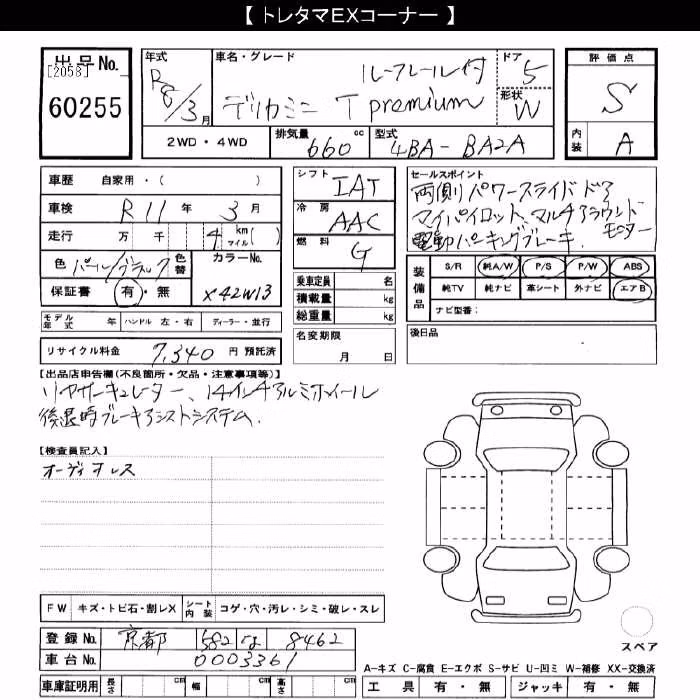 【 トレタマEXコーナー 】
出品No.
[2058]
60255
年式
R8/3月
車名・グレード
ルーフレール付
デリカミニ T premium
ドア
5
形状
W
評価点
S
内装
A
2WD・4WD
排気量 660 cc
型式 4BA-BA2A
車歴 自家用・( )
車検 R11年 3月
走行 万 千 4 km マイル( )
色 パール/ブラック 色替
カラーNo.
X42W13
保証書 有・無
モデル年式 年 ハンドル 左・右 ディーラー・並行
リサイクル料金 7,340 円 預託済
シフト IAT
冷房 AAC
燃料 G
乗車定員 名
積載量 kg
総重量 kg
名変期限
月 日
セールスポイント
両側パワースライドドア
マイパイロット、マルチアラウンド
モニター
電動パーキングブレーキ.
装備品
S/R 純A/W P/S P/W ABS
純TV 純ナビ 革シート 外ナビ エアB
ナビ型番:
後日品
【出品店申告欄(不良箇所・欠品・注意事項等)】
リヤサーキュレーター、14インチアルミホイール
後退時ブレーキアシストシステム.
【検査員記入】
オーディオレス
FW キズ・トビ石・割レX シート内装 コゲ・穴・汚レ・シミ・破レ・スレ
登録No. 京都 582 な 8462
車台No. 0003361
車庫証明用 長さ cm 幅 cm 高さ cm
スペア
A-キズ C-腐食 E-エクボ S-サビ U-凹ミ W-補修 XX-交換済
工具 有・無 ジャッキ 有・無